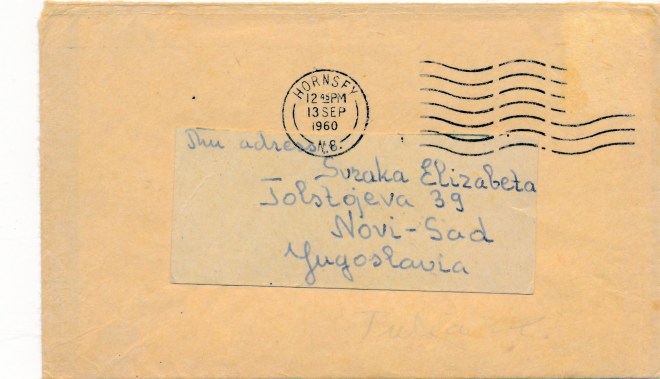 HORNSEY
12 45 PM
13 SEP
1960
N.8.
adress
Svraka Elizabeta
Tolstojeva 39
Novi-Sad
Yugoslavia